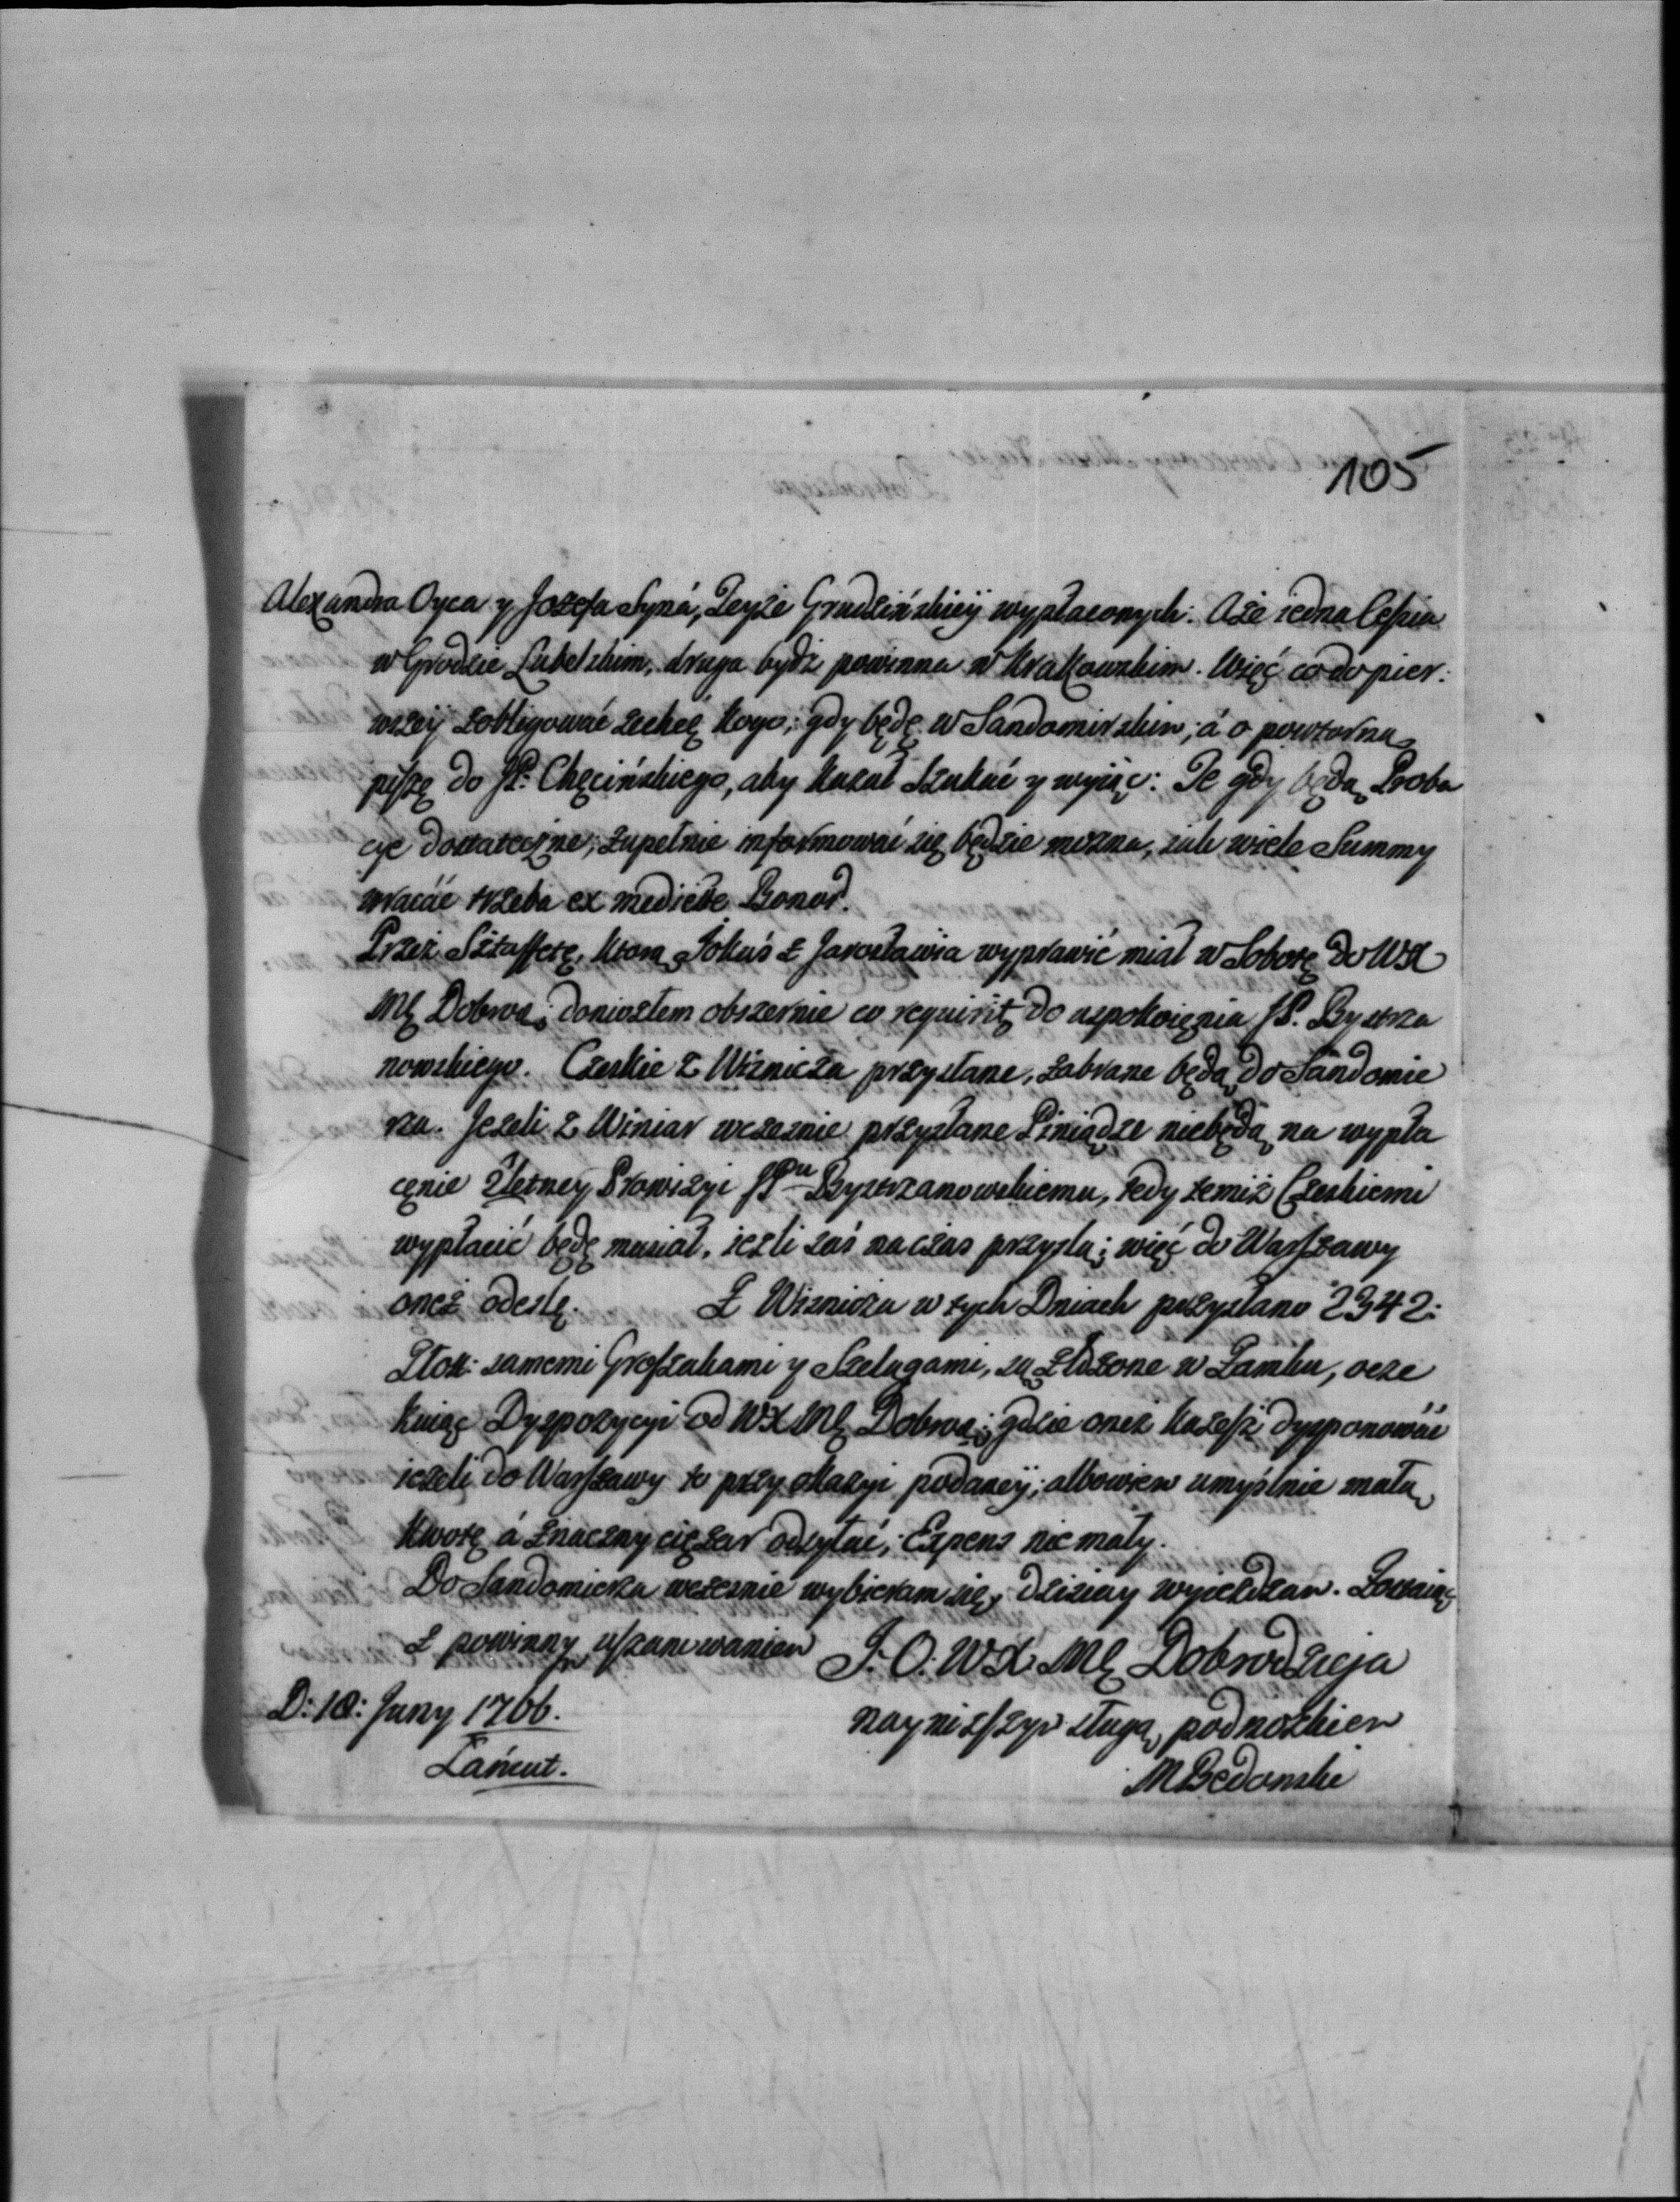 105
Alexandra Oyca y Jozefa Syná, Teyże Grudzińskiey wypłaconych: Aże iedna Cessia
w Grodzie Lubelskim, druga bydź powinna w Krakowskim. Więć co do pier:
wszey zobligować zechcę kogo; gdy będę w Sandomirskim; á o powtorną
piszę do JP: Chęcińskiego, aby kazał szukać y wyiąc: Te gdy będą Proba
cye dostateczne; zupełnie informować się będzie mozna, iak wiele Summy
wracáć trzeba ex medietate Bonor.
Przez Sztaffetę, ktorą Jokuś z Jarosławia wyprawić miał w Sobotę do WX
Mę Dobrod: doniosłem obszernie co requirit do uspokoięnia JP. Bystrza
nowskiego. Czeskie z Wiśnicza przysłane, zabrane będą do Sandomie
rza. Jeżeli z Winiar wczesnie przysłane Piniądze niebędą na wypła
cęnie 2letney Prowizyi JPu Bystrzanowskiemu, tedy temiż Czeskiemi
wypłacić będę musiał, ieżli zaś na czas przyslą; więć do Warszawy
oneż odeslę. Z Wisnicza w tych Dniach przysłano 2342:
Złott: samemi Groszakami y Szelągami, są złożone w Zamku, ocze
kuiąc Dyspozycyi od WX Mę Dobrod: gdzie oneż każesz dysponować
ieżeli do Warszawy to przy okazyi podaney; albowiem umyślnie małą
kwotę á znaczny ciężar odsyłać; Expens nie mały.
Do Sandomierza wczesnie wybieram się, dzisiay wyieżdżam. Zostaię
z powinnym uszanowaniem J. O. WX Mę Dobrodzieja
nayniższym sługą podnożkiem
MBędoński
D: 18: Juny 1766.
Łańcut.